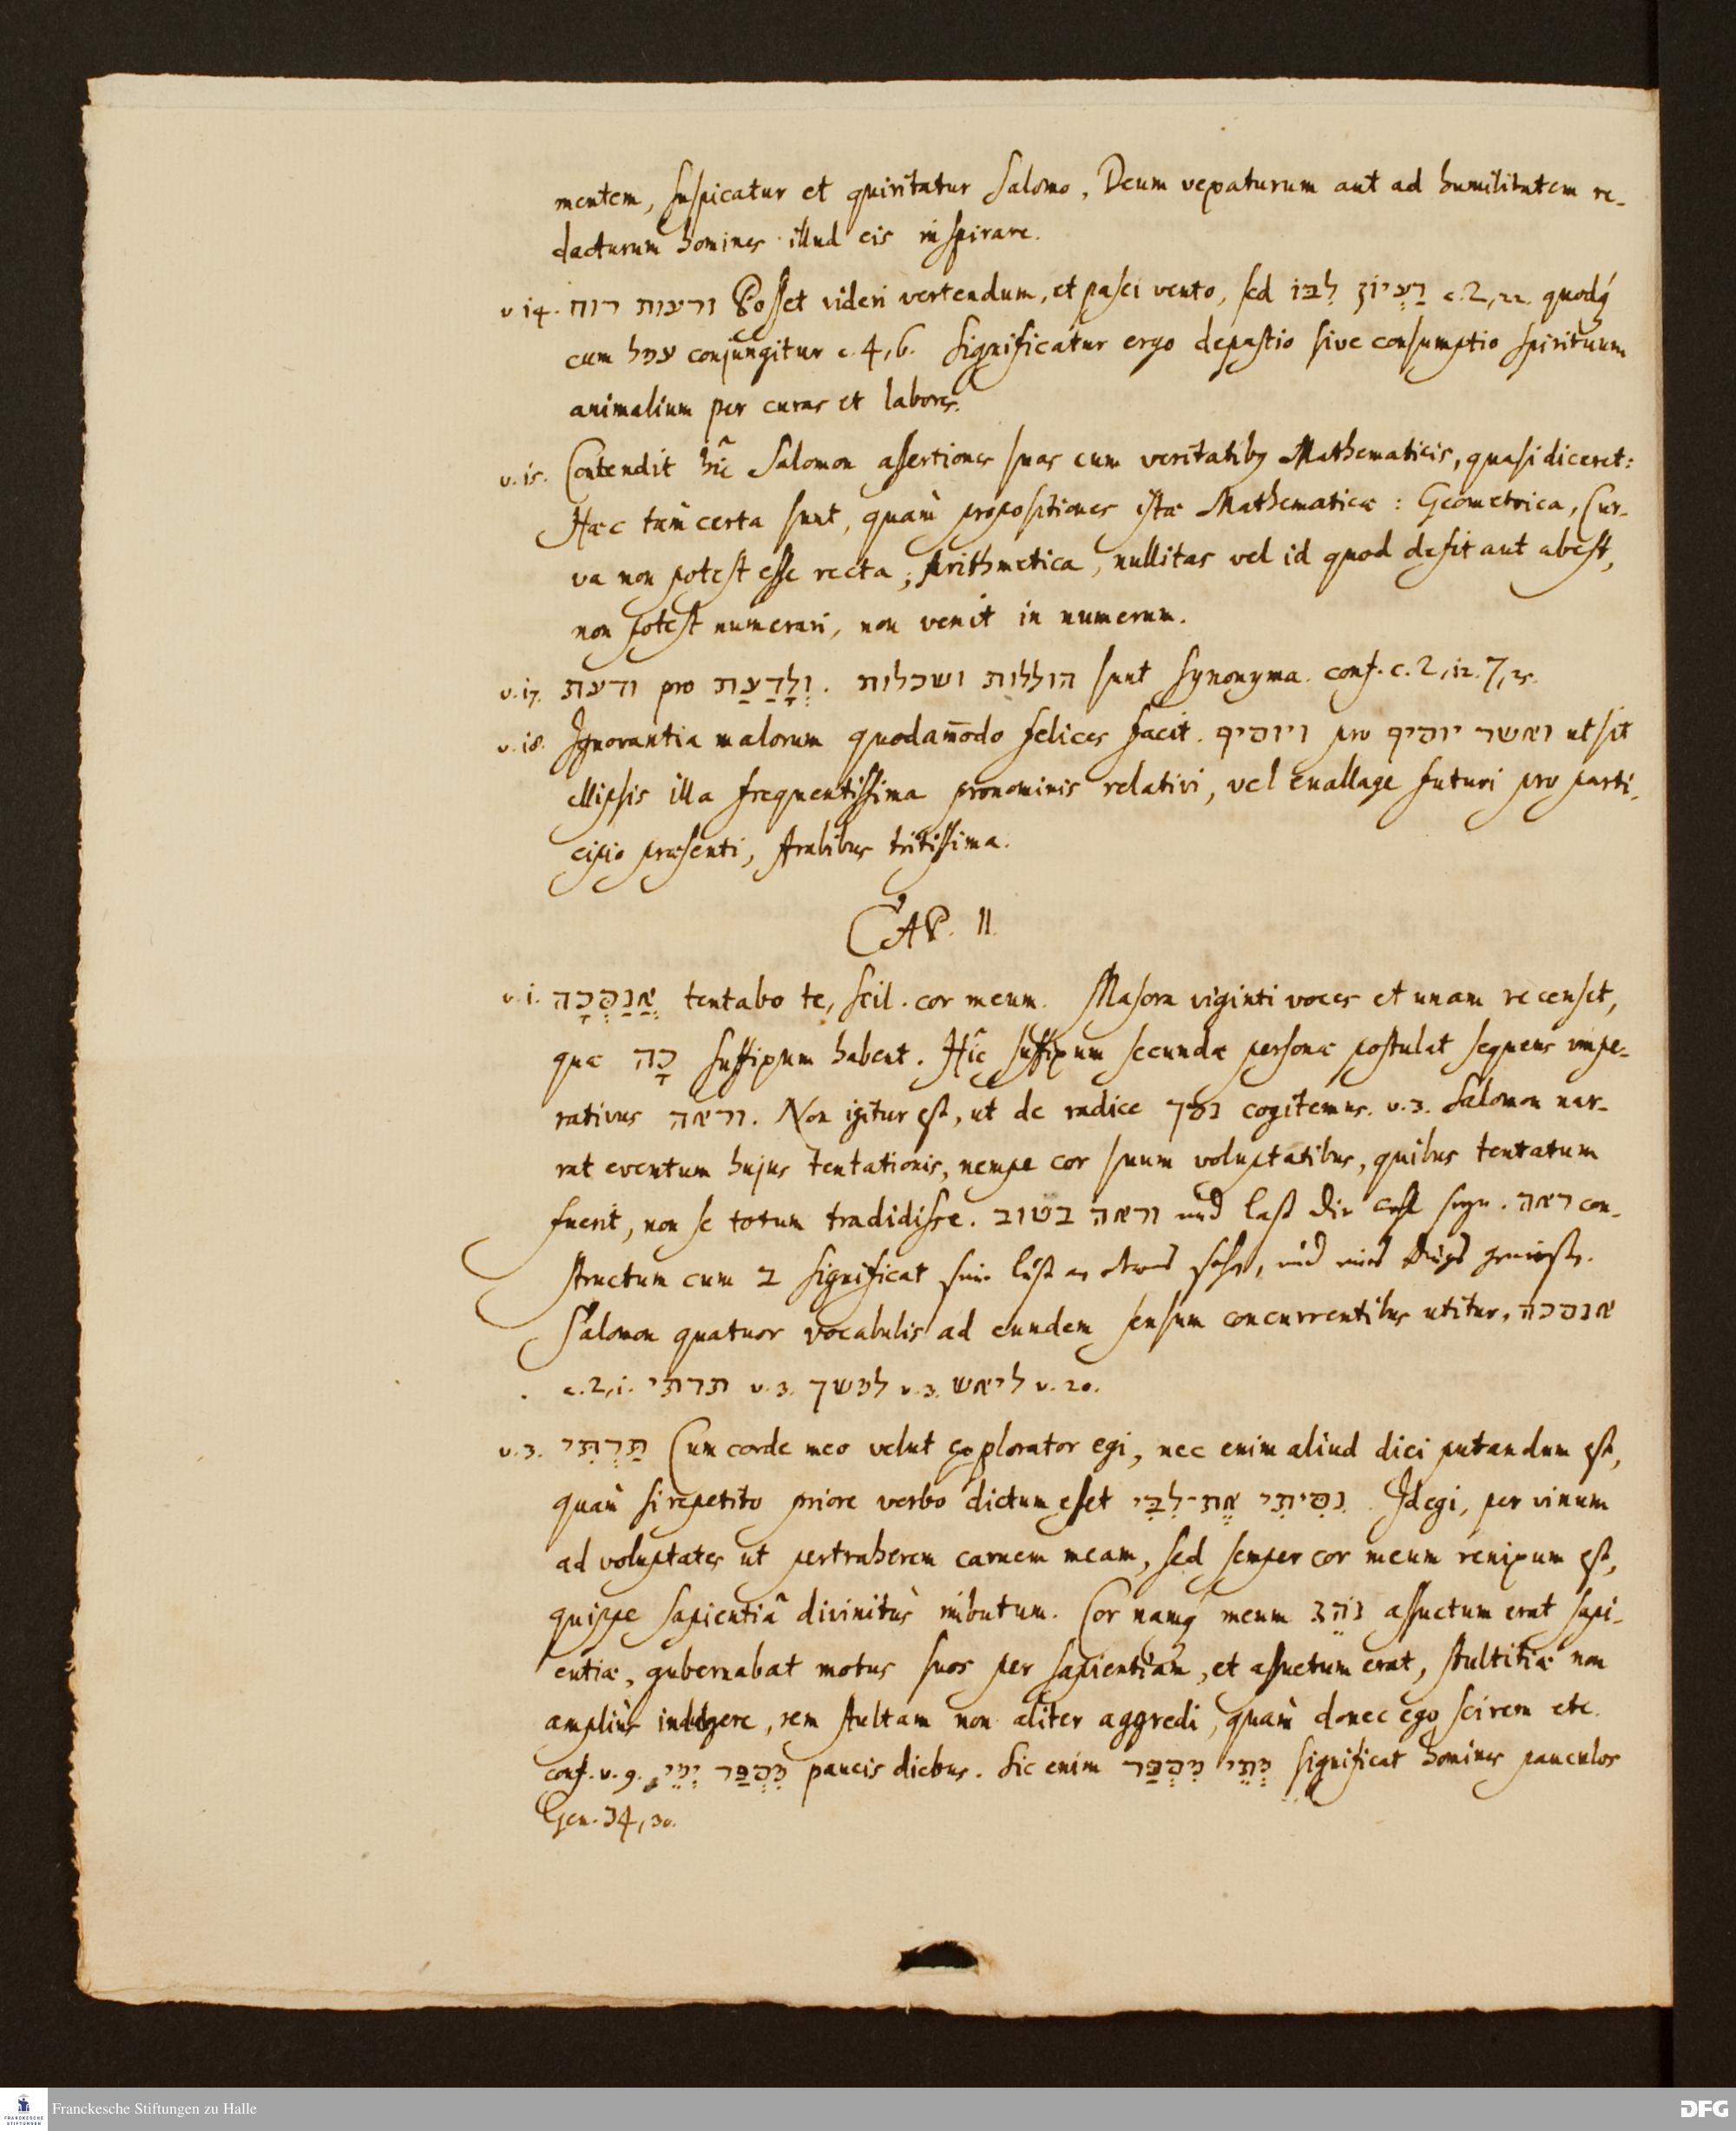 mentem, suspicatur et quiritatur Salomo, Deum vexaturum aut ad humilitatem re-
dacturum homines illud eis inspirare.
v. 14. ורעות רוח Posset videri vertendum, et pasci vento, sed רַעְיוֹן לִבּוֹ c. 2, 22. quodq́
cum עמל conjungitur c. 4, 6. Significatur ergo depastio sive consumptio spirituum
animalium per curas et labores.
v. 15. Contendit hîc Salomon assertiones suas cum veritatibꝫ Mathematicis, quasi diceret:
Hæc tàm certa sunt, quàm propositiones istæ Mathematicæ: Geometrica, Cur-
va non potest esse recta; Arithmetica, nullitas vel id quod desit aut abest,
non potest numerari, non venit in numerum.
v. 17. ודעת pro וְלָדַעַת. הוללות ושכלות sunt synonyma. conf. c. 2, 12. 7, 25.
v. 18. Ignorantia malorum quodam̄odo felices facit. ויוסיף pro ואשר יוסיף ut sit
ellipsis illa frequentissima pronominis relativi, vel enallage futuri pro parti-
cipio præsenti, Arabibus tritissima.
CAP. II.
v. 1. אֲנַסְּכָה tentabo te, scil. cor meum. Masora viginti voces et unam recenset,
quæ כָה suffixum habent. Hîc suffixum secundæ personæ postulat sequens impe-
rativus וראה. Non igitur est, ut de radice נסך cogitemus. v. 3. Salomon nar-
rat eventum hujus tentationis, nempe cor suum voluptatibus, quibus tentatum
fuerit, non se totum tradidisse. וראה בטוב und laß dir wohl seyn. ראה con-
structum cum ב significat seine lust an etwas sehen, und eines dings genießen.
Salomon quatuor vocabulis ad eundem sensum concurrentibus utitur, אנסכה
c. 2, 1. תרתי v. 3. למשך v. 3. ליאש v. 20.
v. 3. תַּרְתִּי Cum corde meo velut explorator egi, nec enim aliud dici putandum est,
quàm si repetito priore verbo dictum esset נִסִּיתִי אֶת־לִבִּי. Id egi, per vinum
ad voluptates ut pertraherem carnem meam, sed semper cor meum renixum est,
quippe sapientiâ divinitùs imbutum. Cor namq́ meum נֹהֵג assuetum erat sapi-
entiæ, gubernabat motus suos per sapientiam, et assuetum erat, stultitiæ non
ampliùs indulgere, rem stultam non aliter aggredi, quàm donec ego scirem etc.
conf. v. 9. מִסְפַּר יְמֵי paucis diebus. Sic enim מְתֵי מִסְפַּר significat homines pauculos
Gen. 34, 30.
Franckesche Stiftungen zu Halle
FRANCKESCHE STIFTUNGEN
DFG